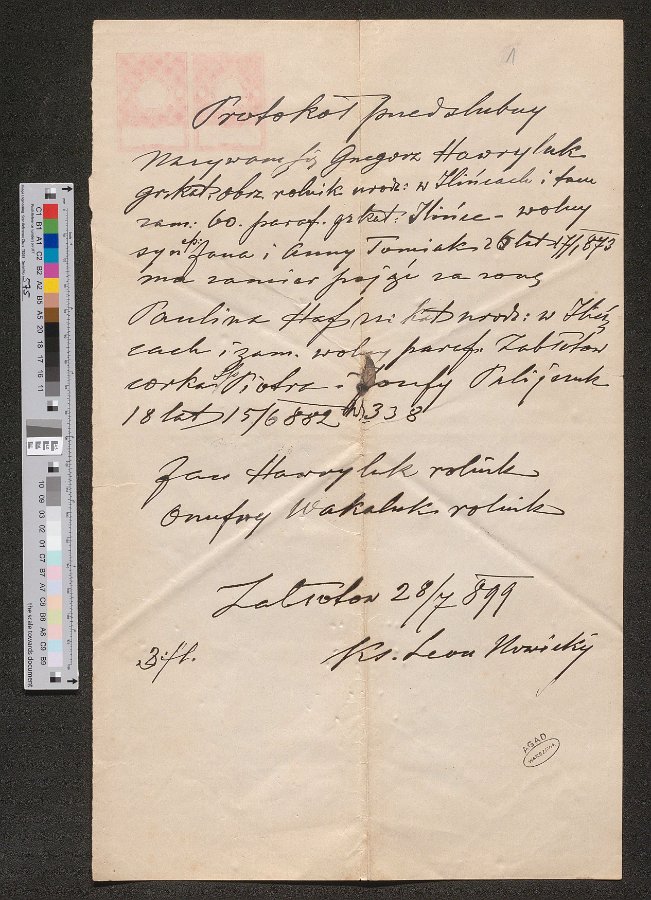 1
Protokół przedślubny
Nazywam się Grzegorz Hawryluk
gr. kat. obrz. rolnik urodz: w Ilińcach i tam
zam: 60. paraf. gr kat: Ilińce – wolny
syn śp. Jana i Anny Tomiak 26 lat 17/1 873
ma zamiar pojąć za żonę
Paulina Haf rz: kat urodz: w Iliń-
cach i zam. wolny paraf. Zabłotów
córka Piotra i Józefy Palijczuk
18 lat 15/6 882 N 338
Jan Hawryluk rolnik
Onufry Wakaluk rolnik
Zabłotów 28/7 899
Ks. Leon Nowicky
3 fl.
AGAD
WARSZAWA
the scale towards document